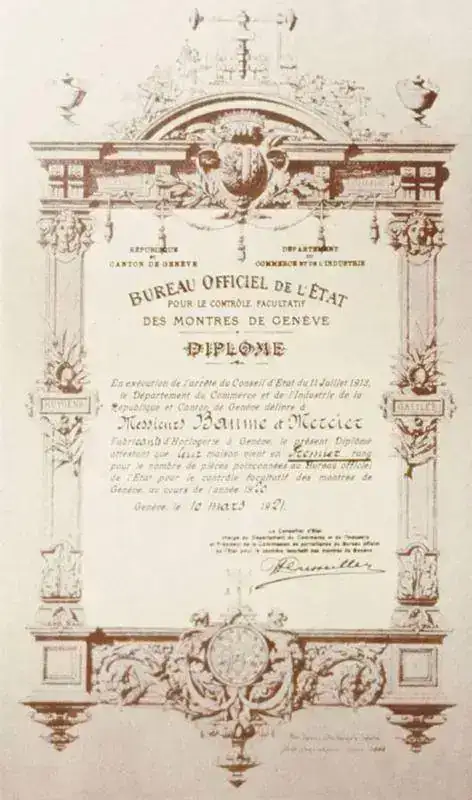 RÉPUBLIQUE
ET
CANTON DE GENÈVE
DÉPARTEMENT
DU
COMMERCE ET DE L'INDUSTRIE
BUREAU OFFICIEL DE L'ÉTAT
POUR LE CONTRÔLE FACULTATIF
DES MONTRES DE GENÈVE
DIPLÔME
En exécution de l'arrêté du Conseil d'Etat du 11 Juillet 1913,
le Département du Commerce et de l'Industrie de la
République et Canton de Genève délivre à
Messieurs Baume et Mercier
Fabricants d'Horlogerie à Genève, le présent Diplôme
attestant que leur maison vient en Premier rang
pour le nombre de pièces poinçonnées au Bureau officiel
de l'Etat pour le contrôle facultatif des montres de
Genève, au cours de l'année 1920
Genève, le 10 mars 1921.
HUYGENS
GALILÉE
Le Conseiller d'Etat
chargé du Département du Commerce et de l'Industrie
et Président de la Commission de surveillance du Bureau officiel
de l'Etat pour le contrôle facultatif des montres de Genève